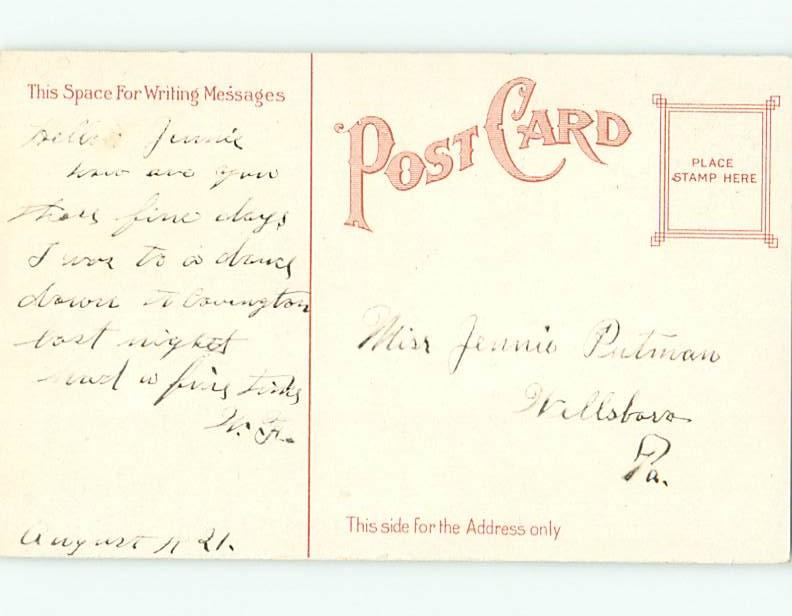 This Space For Writing Messages
Hello Jennie
how are you
these fine days
I was to a dance
down to Covington
last night
had a fine time
W. F.
August 21.
POST CARD
PLACE
STAMP HERE
Miss Jennie Putman
Wellsboro
Pa.
This side for the Address only